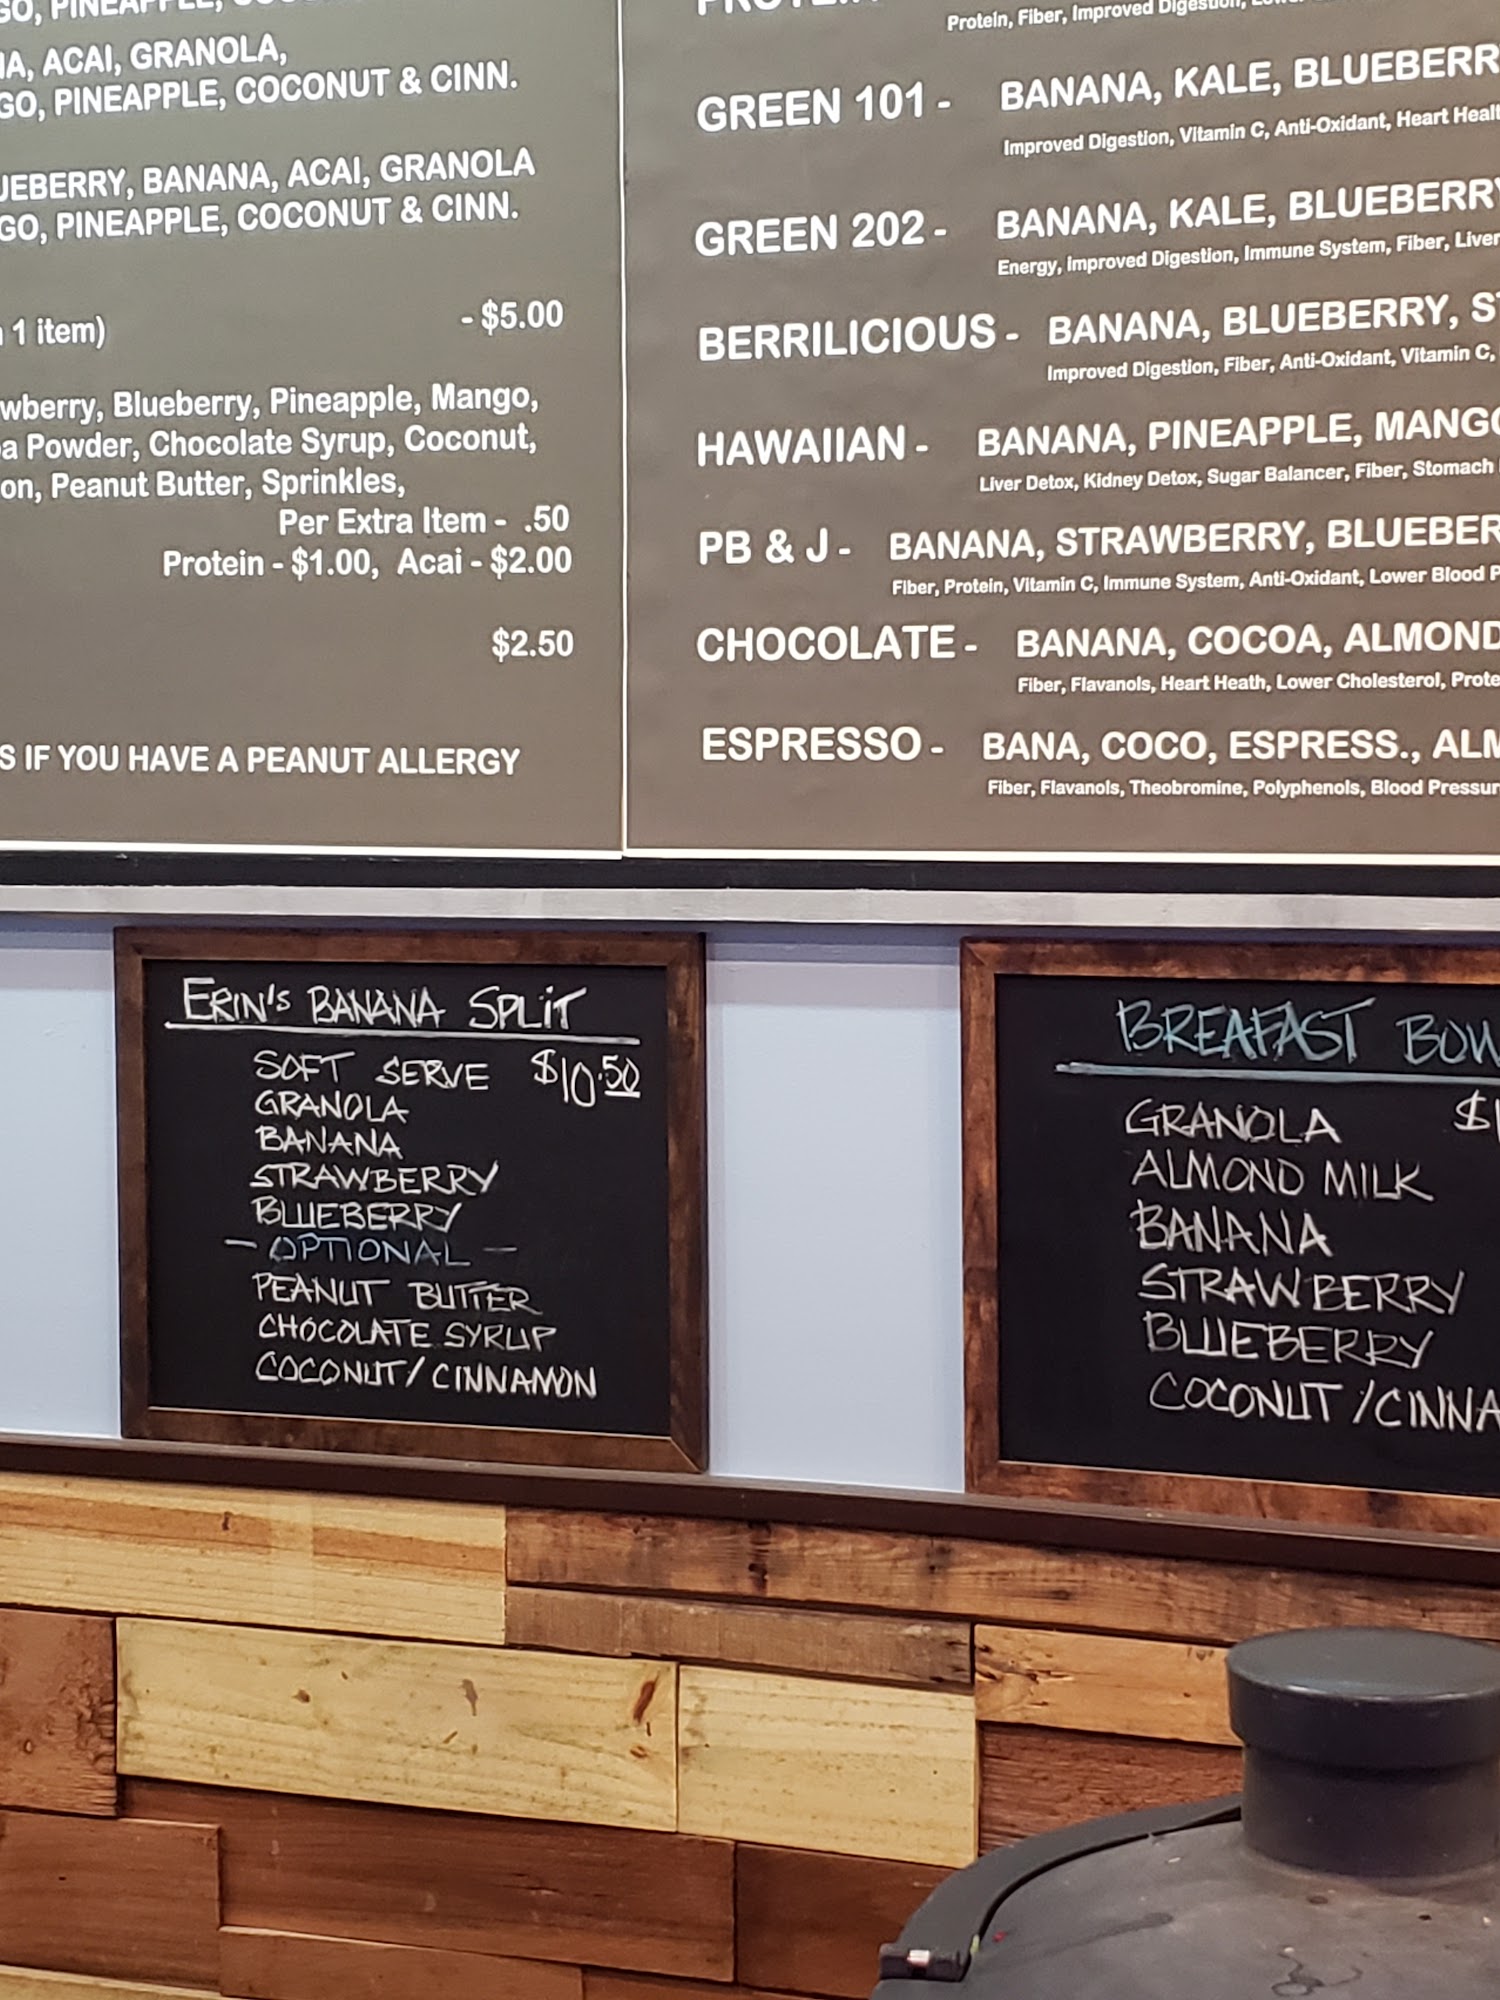 PINEAPPLE,
ACAI, GRANOLA,
PINEAPPLE, COCONUT & CINN.
BANANA, ACAI, GRANOLA
PINEAPPLE, COCONUT & CINN.
1 item) - $5.00
Blueberry, Pineapple, Mango,
Powder, Chocolate Syrup, Coconut,
Peanut Butter, Sprinkles,
Per Extra Item - .50
Protein - $1.00, Acai - $2.00
$2.50
IF YOU HAVE A PEANUT ALLERGY
Protein, Fiber, Improved Digestion,
GREEN 101 - BANANA, KALE, BLUEBERR
Improved Digestion, Vitamin C, Anti-Oxidant, Heart Healt
GREEN 202 - BANANA, KALE, BLUEBERRY
Energy, Improved Digestion, Immune System, Fiber, Liver
BERRILICIOUS - BANANA, BLUEBERRY, S
Improved Digestion, Fiber, Anti-Oxidant, Vitamin C,
HAWAIIAN - BANANA, PINEAPPLE, MANGO
Liver Detox, Kidney Detox, Sugar Balancer, Fiber, Stomach
PB & J - BANANA, STRAWBERRY, BLUEBER
Fiber, Protein, Vitamin C, Immune System, Anti-Oxidant, Lower Blood P
CHOCOLATE - BANANA, COCOA, ALMOND
Fiber, Flavanols, Heart Heath, Lower Cholesterol, Prote
ESPRESSO - BANA, COCO, ESPRESS., ALM
Fiber, Flavanols, Theobromine, Polyphenols, Blood Pressur
ERIN'S BANANA SPLIT
SOFT SERVE $10.50
GRANOLA
BANANA
STRAWBERRY
BLUEBERRY
- OPTIONAL -
PEANUT BUTTER
CHOCOLATE SYRUP
COCONUT/CINNAMON
BREAFAST BOW
GRANOLA $1
ALMOND MILK
BANANA
STRAWBERRY
BLUEBERRY
COCONUT/CINNA